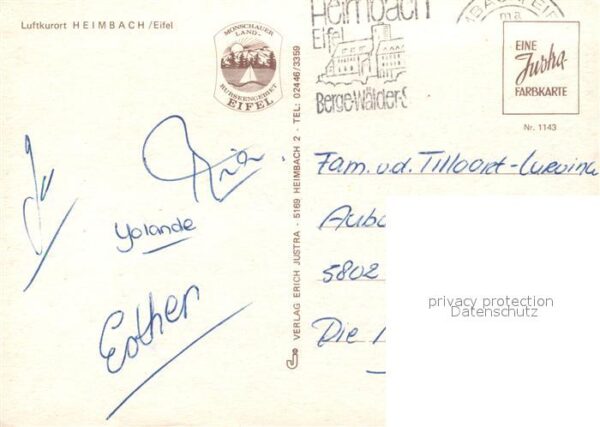 Luftkurort HEIMBACH/Eifel
MONSCHAUER
LAND-
RURSEENGEBIET
EIFEL
Heimbach
Eifel
Berge-Wälder-S
EINE
Justra-
FARBKARTE
Nr. 1143
Yolande
Esther
VERLAG ERICH JUSTRA - 5169 HEIMBACH 2 - TEL: 02446/3359
Fam. v.d. Tillaart-Lurvink
5802
Die
privacy protection
Datenschutz